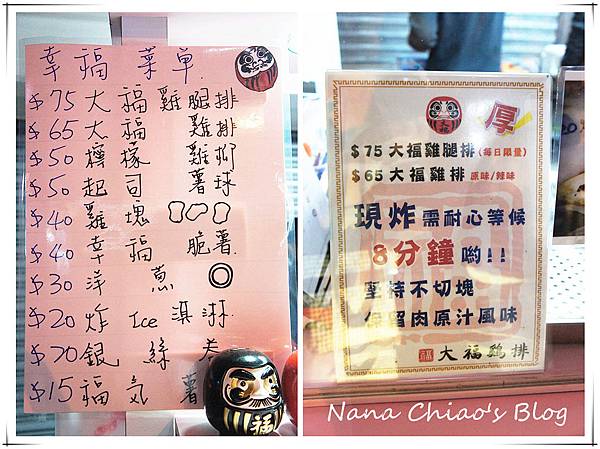 幸福菜單
$75大福雞腿排
$65大福雞排
$50檸檬雞柳
$50起司薯球
$40雞塊
$40幸福脆薯
$30洋蔥
$20炸Ice淇淋
$20銀絲卷
$15福氣薯
福
大福
厚
$75大福雞腿排(每日限量)
$65大福雞排 原味/辣味
現炸需耐心等候
8分鐘喲!!
堅持不切塊
保留肉原汁風味
大福鷄排
Nana Chiao's Blog